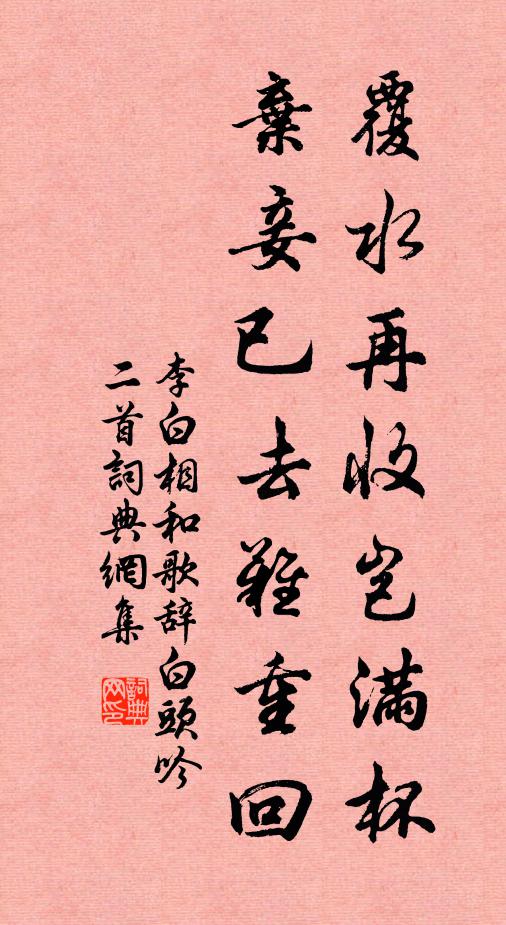 覆水再收岂满杯
棄妾已去難重回
李白相和歌辞白頭吟
二首詞典網集
詞典
网印